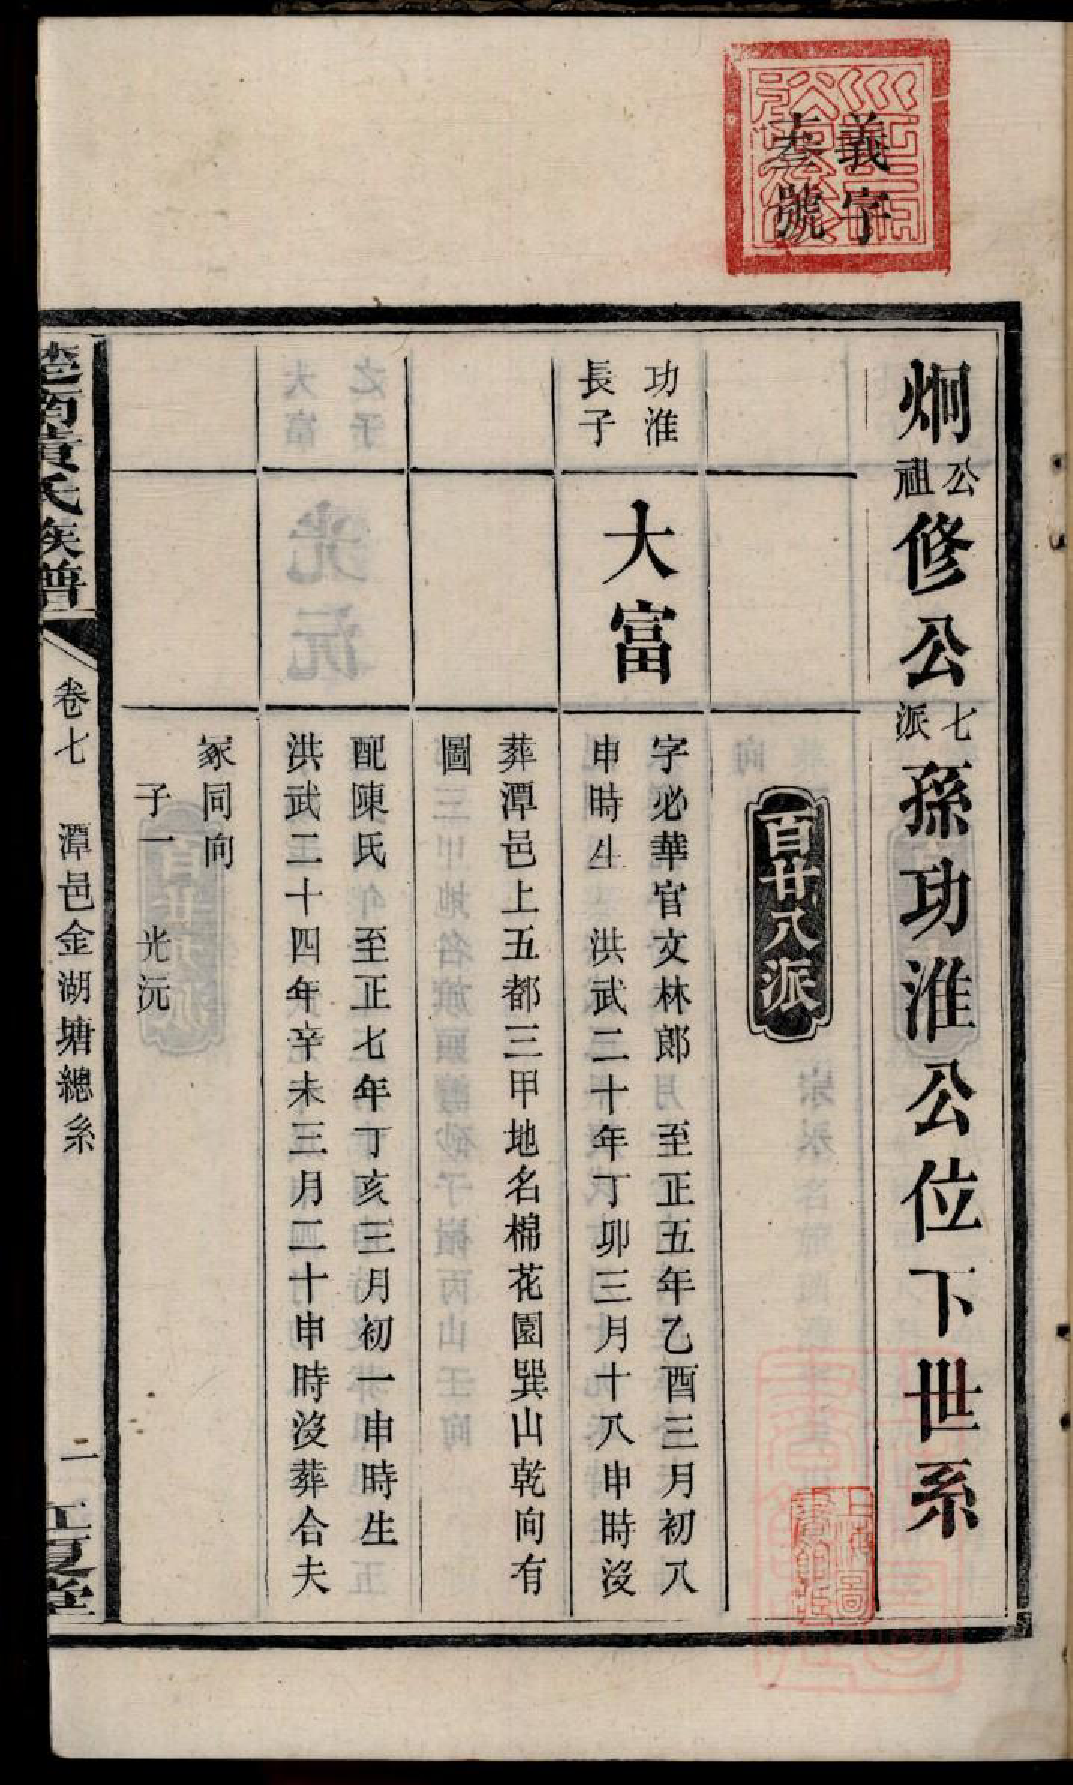 義字
夲號
炯公祖修公七派孫功淮公位下世系
百廿八派
功淮
長子
大富
字必華官文林郎 至正五年乙酉三月初八
申時生 洪武二十年丁卯三月十八申時沒
葬潭邑上五都三甲地名棉花園巽山乾向有
圖
配陳氏 至正七年丁亥三月初一申時生
洪武二十四年辛未三月二十申時沒葬合夫
冢同向
子一 光沅
楚南黃氏族譜
卷七 潭邑金湖塘總系
二
江夏堂